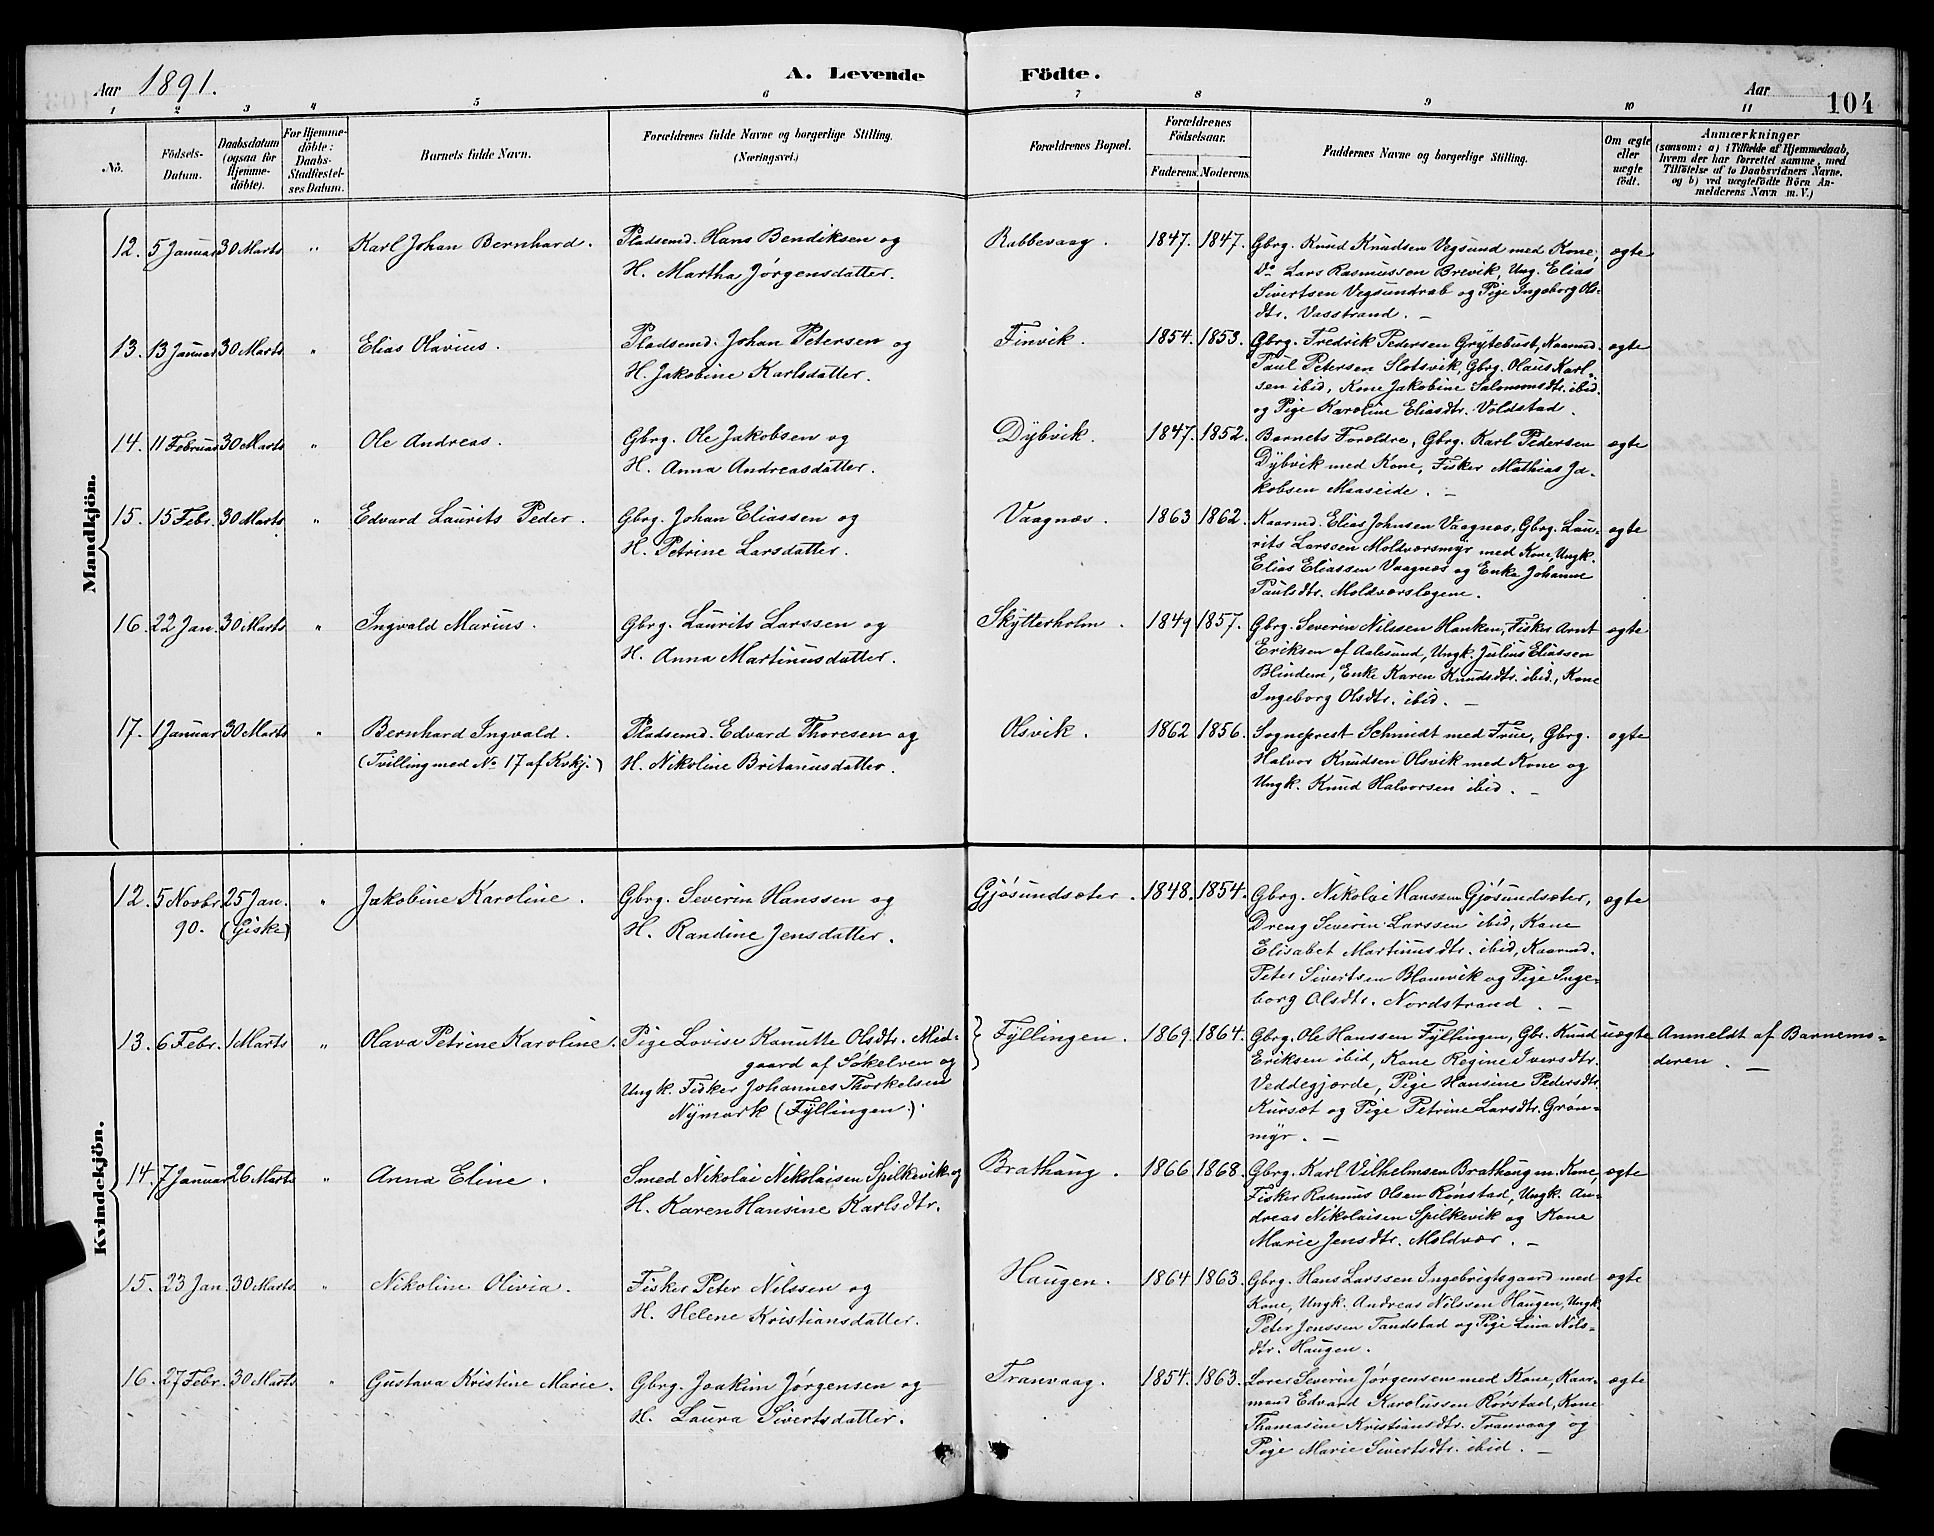 Aar 1891. A. Levende Födte. Aar 104
1 2 3 4 5 6 7 8 9 10 11
No. Födsels-Datum. Daabsdatum (ogsaa for Hjemme-döbte). For Hjemme-döbte: Daabs-Stadfæstel-ses Datum. Barnets fulde Navn. Forældrenes fulde Navne og borgerlige Stilling. (Næringsvei.) Forældrenes Bopæl. Forældrenes Födselsaar. Faderens. Moderens. Faddernes Navne og borgerlige Stilling. Om ægte eller uægte födt. Anmærkninger (saasom: a) i Tilfælde af Hjemmedaab, hvem der har forrettet samme, med Tilføielse af to Daabsvidners Navne. og b) ved uægtefödte Börn An-melderens Navn m. V.)
Mandkjön.
12. 5 Januar 30 Marts " Karl Johan Bernhard. Pladsemd. Hans Bendiksen og Rabbevaag. 1847. 1847. Gbrg. Knud Knudsen Vegsund med Kone, ægte
H. Martha Jørgensdatter. Do Lars Rasmussen Brevik, Ung. Elias
Sivertsen Vegsundrab og Pige Ingeborg Ols-
dtr. Vasstrand. —
13. 13 Januar 30 Marts " Elias Olavius. Pladsemd. Johan Petersen og Finvik. 1854. 1853. Gbrg. Fredrik Pedersen Grytebust, Kaarmd. ægte
H. Jakobine Karlsdatter. Paul Petersen Slotsvik, Gbrg. Olaus Karl-
sen ibid, Kone Jakobine Salomonsdtr. ibid.
og Pige Karoline Eliasdtr. Voldstad.
14. 11 Februar 30 Marts " Ole Andreas. Gbrg. Ole Jakobsen og Dybvik. 1847. 1852. Barnets Foreldre, Gbrg. Karl Pedersen ægte
H. Anna Andreasdatter. Dybvik med Kone, Fisker Mathias Ja-
kobsen Maaseide. —
15. 15 Febr. 30 Marts " Edvard Laurits Peder. Gbrg. Johan Eliassen og Vaagnæs. 1863 1862. Kaarmd. Elias Johnsen Vaagnæs, Gbrg. Lau- ægte
H. Petrine Larsdatter. rits Larssen Moldværsmyr med Kone, Ungk.
Elias Eliassen Vaagnæs og Enke Johanne
Paulsdtr. Moldværslegene.
16. 22 Jan. 30 Marts " Ingvald Marius. Gbrg. Laurits Larssen og Skytterholm. 1849 1857. Gbrg. Severin Nilssen Hanken, Fisker Arnt ægte
H. Anna Martinusdatter. Eriksen af Aalesund, Ungk. Julius Eliassen
Blindem, Enke Karen Knudsdtr. ibid., Kone
Ingeborg Olsdtr. ibid. —
17. 1 Januar 30 Marts " Bernhard Ingvald. Pladsemd. Edvard Thoresen og Olsvik. 1862 1856. Sogneprest Schmidt med Frue, Gbrg. ægte
(Tvilling med No 17 af Kvkj.) H. Nikoline Britanusdatter. Halvor Knudsen Olsvik med Kone og
Ungk. Knud Halvorsen ibid. —
Kvindekjön.
12. 5 Novbr. 25 Jan. " Jakobine Karoline. Gbrg. Severin Hanssen og Gjøsundsæter. 1848. 1854. Gbrg. Nikolai Hanssen Gjøsundsæter, ægte
90. (Giske) H. Randine Jensdatter. Dreng Severin Larssen ibid, Kone
Elisabet Martinusdtr. ibid, Kaarmd.
Peter Sivertsen Blomvik og Pige Inge-
borg Olsdtr. Nordstrand. —
13. 6 Febr. 1 Marts " Olava Petrine Karoline. Pige Lovise Kanutte Olsdtr. Mid- Fyllingen. 1869. 1864. Gbrg. Ole Hanssen Fyllingen, Gbr. Knud uægte Anmeldt af Barnemo-
gaard af Søkelven og Eriksen ibid, Kone Regine Iversdtr. deren. —
Ungk. Fisker Johannes Thorkelsen Veddegjerde, Pige Hansine Pedersdtr.
Nymark (Fyllingen). Kursæt og Pige Petrine Larsdtr. Grøn-
myr. —
14. 7 Januar 26 Marts " Anna Eline. Smed Nikolai Nikolaisen Spilkevik og Brathaug. 1866 1868. Gbrg. Karl Vilhelmsen Brathaug m. Kone, ægte
H. Karen Hansine Karlsdtr. Fisker Rasmus Olsen Rønstad, Ungk. An-
dreas Nikolaisen Spilkevik og Kone
Marie Jensdtr. Moldvær. —
15. 23 Jan. 30 Marts " Nikoline Olivia. Fisker Peter Nilssen og Haugen. 1864 1863. Gbrg. Hans Larssen Ingebrigtsgaard med ægte
H. Helene Kristiansdatter. Kone, Ungk. Andreas Nilssen Haugen, Ungk.
Peter Jenssen Tandstad og Pige Lina Nils-
dtr. Haugen.
16. 27 Febr. 30 Marts " Gustava Kristine Marie. Gbrg. Joakim Jørgensen og Tranvaag. 1854. 1863. Severin Jørgensen med Kone, Kaar- ægte
H. Laura Sivertsdatter. mand Edvard Karolussen Rørstad, Kone
Thomasine Kristiansdtr. Tranvaag og
Pige Marie Sivertsdtr. ibid. —